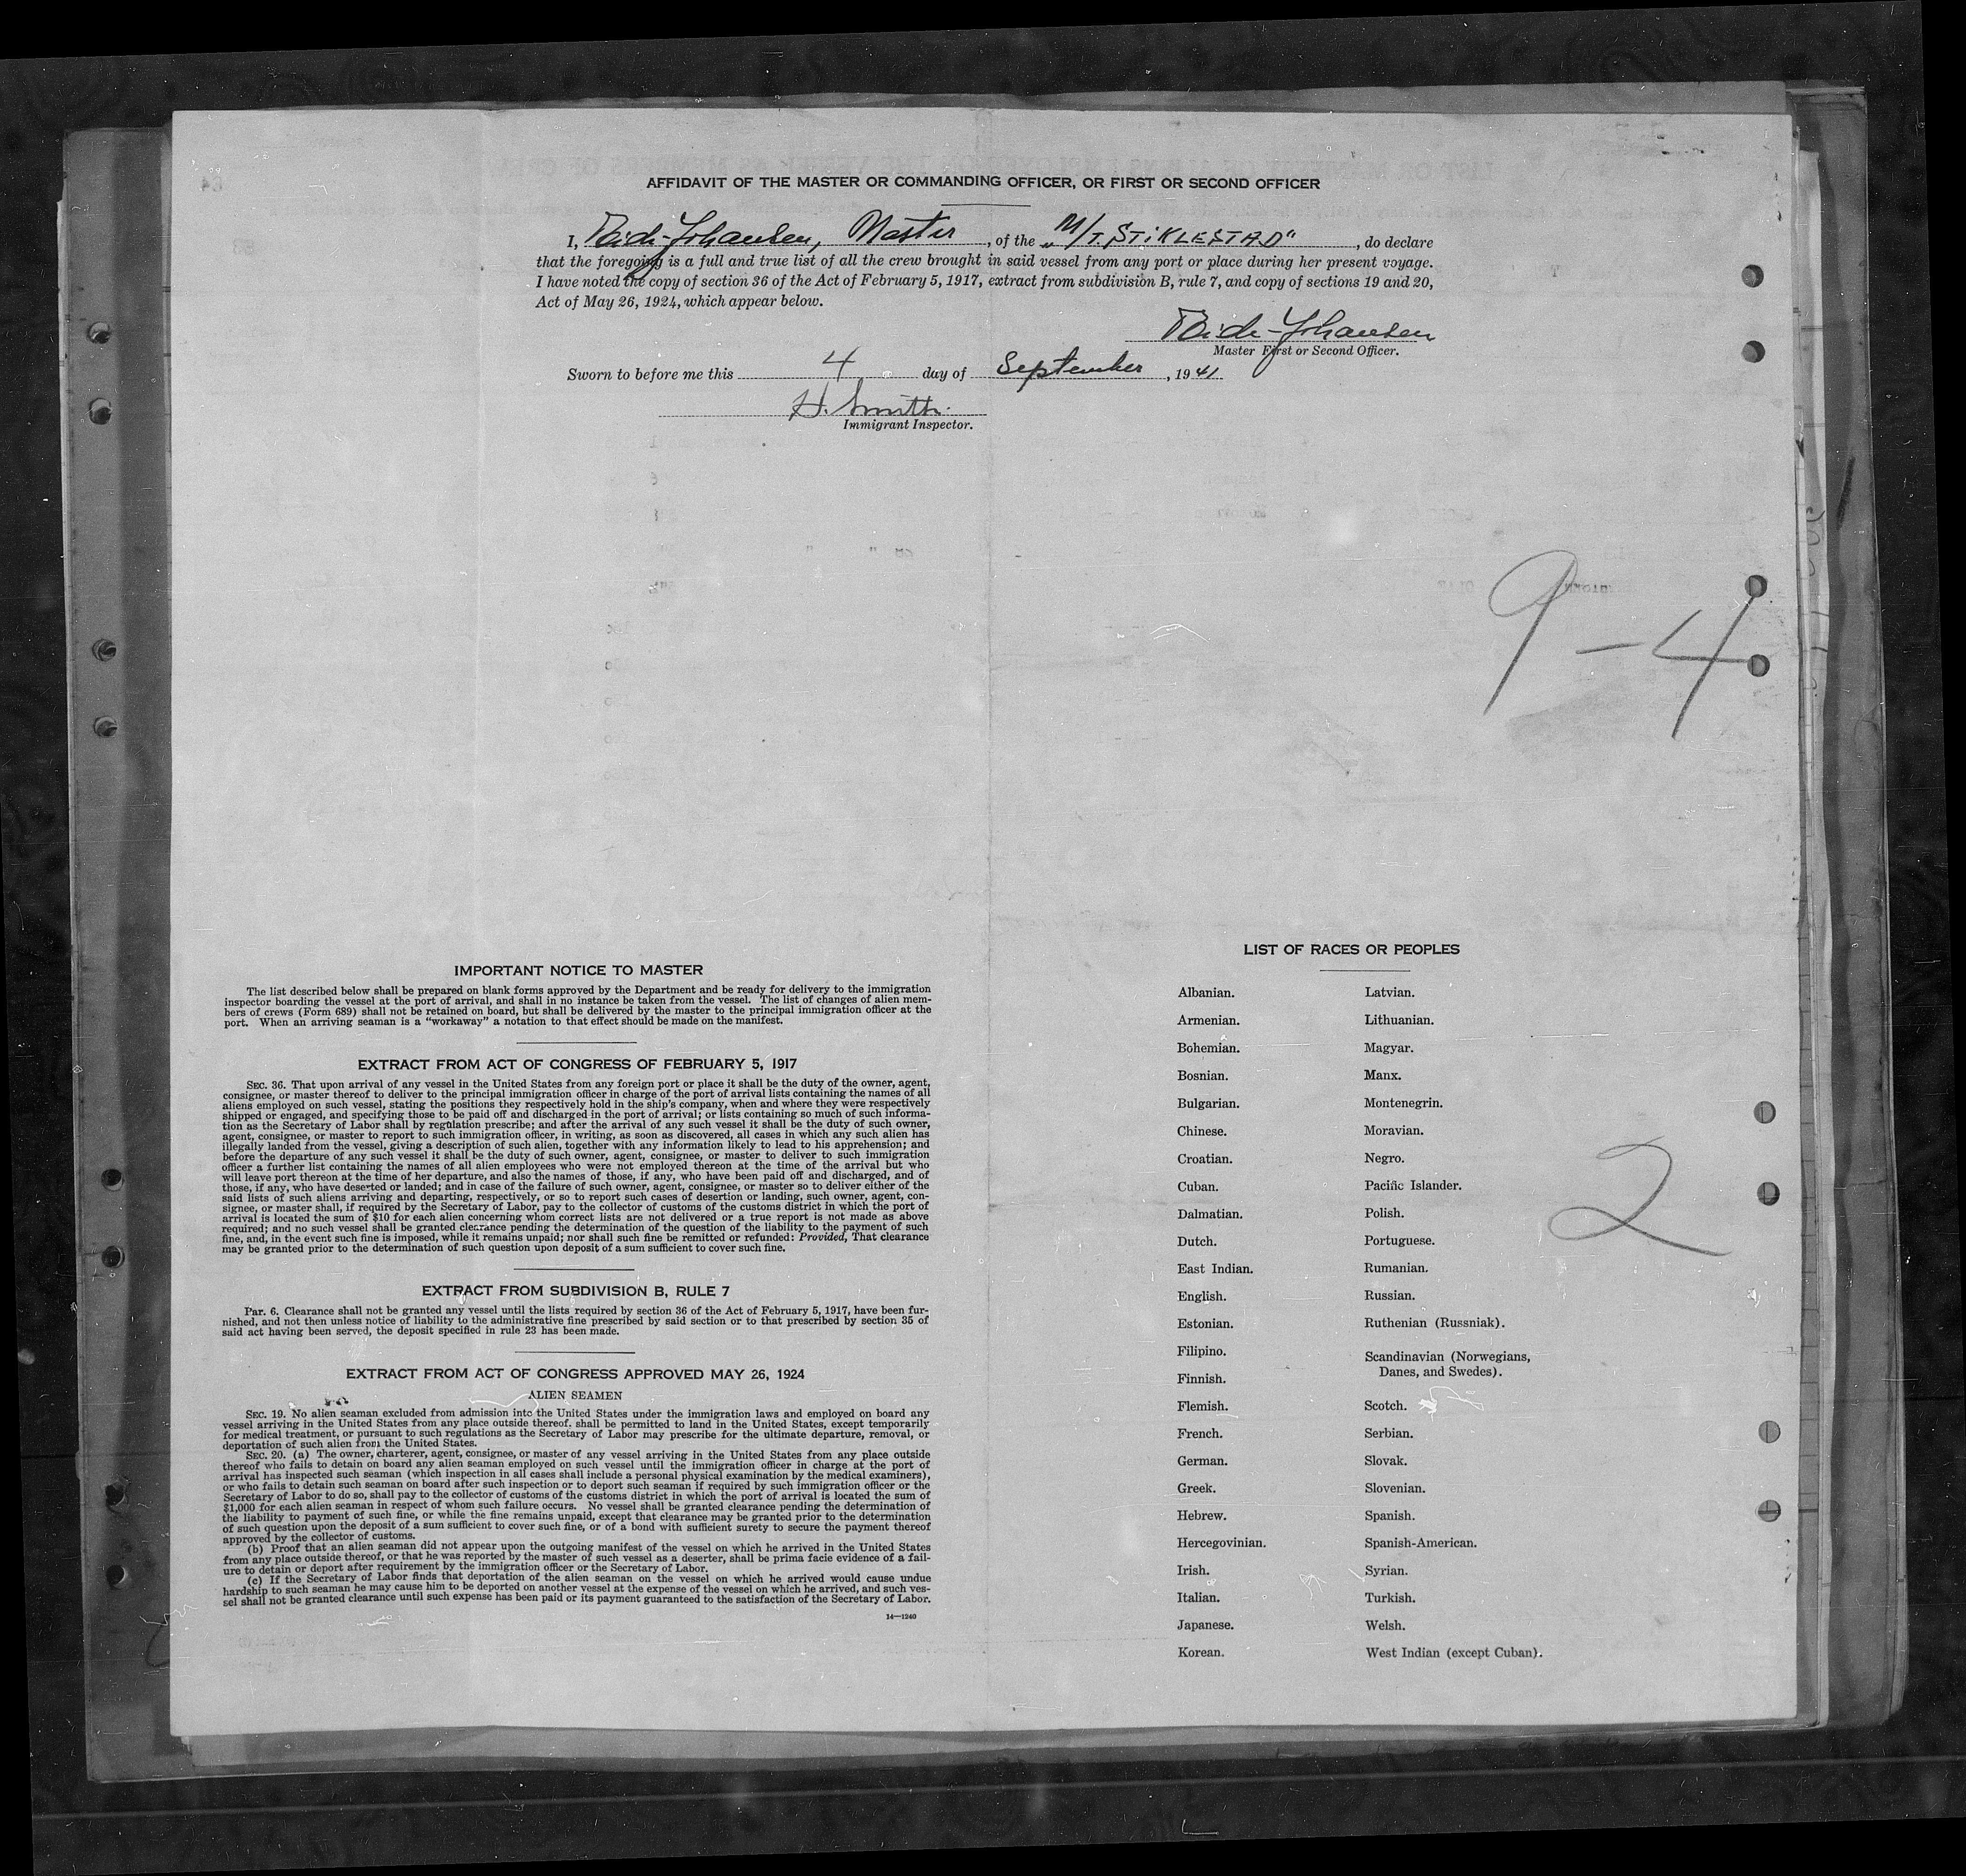 AFFIDAVIT OF THE MASTER OR COMMANDING OFFICER, OR FIRST OR SECOND OFFICER
I, Johansen, Master, of the „M/T. STIKLESTAD", do declare
that the foregoing is a full and true list of all the crew brought in said vessel from any port or place during her present voyage.
I have noted the copy of section 36 of the Act of February 5, 1917, extract from subdivision B, rule 7, and copy of sections 19 and 20,
Act of May 26, 1924, which appear below.
Johansen
Master First or Second Officer.
Sworn to before me this 4 day of September, 1941
H. Smith.
Immigrant Inspector.
9-4
IMPORTANT NOTICE TO MASTER
The list described below shall be prepared on blank forms approved by the Department and be ready for delivery to the immigration
inspector boarding the vessel at the port of arrival, and shall in no instance be taken from the vessel. The list of changes of alien mem-
bers of crews (Form 689) shall not be retained on board, but shall be delivered by the master to the principal immigration officer at the
port. When an arriving seaman is a "workaway" a notation to that effect should be made on the manifest.
EXTRACT FROM ACT OF CONGRESS OF FEBRUARY 5, 1917
SEC. 36. That upon arrival of any vessel in the United States from any foreign port or place it shall be the duty of the owner, agent,
consignee, or master thereof to deliver to the principal immigration officer in charge of the port of arrival lists containing the names of all
aliens employed on such vessel, stating the positions they respectively hold in the ship's company, when and where they were respectively
shipped or engaged, and specifying those to be paid off and discharged in the port of arrival; or lists containing so much of such informa-
tion as the Secretary of Labor shall by regulation prescribe; and after the arrival of any such vessel it shall be the duty of such owner,
agent, consignee, or master to report to such immigration officer, in writing, as soon as discovered, all cases in which any such alien has
illegally landed from the vessel, giving a description of such alien, together with any information likely to lead to his apprehension; and
before the departure of any such vessel it shall be the duty of such owner, agent, consignee, or master to deliver to such immigration
officer a further list containing the names of all alien employees who were not employed thereon at the time of the arrival but who
will leave port thereon at the time of her departure, and also the names of those, if any, who have been paid off and discharged, and of
those, if any, who have deserted or landed; and in case of the failure of such owner, agent, consignee, or master so to deliver either of the
said lists of such aliens arriving and departing, respectively, or so to report such cases of desertion or landing, such owner, agent, con-
signee, or master shall, if required by the Secretary of Labor, pay to the collector of customs of the customs district in which the port of
arrival is located the sum of $10 for each alien concerning whom correct lists are not delivered or a true report is not made as above
required; and no such vessel shall be granted clearance pending the determination of the question of the liability to the payment of such
fine, and, in the event such fine is imposed, while it remains unpaid; nor shall such fine be remitted or refunded: Provided, That clearance
may be granted prior to the determination of such question upon deposit of a sum sufficient to cover such fine.
EXTRACT FROM SUBDIVISION B, RULE 7
Par. 6. Clearance shall not be granted any vessel until the lists required by section 36 of the Act of February 5, 1917, have been fur-
nished, and not then unless notice of liability to the administrative fine prescribed by said section or to that prescribed by section 35 of
said act having been served, the deposit specified in rule 23 has been made.
EXTRACT FROM ACT OF CONGRESS APPROVED MAY 26, 1924
ALIEN SEAMEN
SEC. 19. No alien seaman excluded from admission into the United States under the immigration laws and employed on board any
vessel arriving in the United States from any place outside thereof. shall be permitted to land in the United States, except temporarily
for medical treatment, or pursuant to such regulations as the Secretary of Labor may prescribe for the ultimate departure, removal, or
deportation of such alien from the United States.
SEC. 20. (a) The owner, charterer, agent, consignee, or master of any vessel arriving in the United States from any place outside
thereof who fails to detain on board any alien seaman employed on such vessel until the immigration officer in charge at the port of
arrival has inspected such seaman (which inspection in all cases shall include a personal physical examination by the medical examiners),
or who fails to detain such seaman on board after such inspection or to deport such seaman if required by such immigration officer or the
Secretary of Labor to do so, shall pay to the collector of customs of the customs district in which the port of arrival is located the sum of
$1,000 for each alien seaman in respect of whom such failure occurs. No vessel shall be granted clearance pending the determination of
the liability to payment of such fine, or while the fine remains unpaid, except that clearance may be granted prior to the determination
of such question upon the deposit of a sum sufficient to cover such fine, or of a bond with sufficient surety to secure the payment thereof
approved by the collector of customs.
(b) Proof that an alien seaman did not appear upon the outgoing manifest of the vessel on which he arrived in the United States
from any place outside thereof, or that he was reported by the master of such vessel as a deserter, shall be prima facie evidence of a fail-
ure to detain or deport after requirement by the immigration officer or the Secretary of Labor.
(c) If the Secretary of Labor finds that deportation of the alien seaman on the vessel on which he arrived would cause undue
hardship to such seaman he may cause him to be deported on another vessel at the expense of the vessel on which he arrived, and such ves-
sel shall not be granted clearance until such expense has been paid or its payment guaranteed to the satisfaction of the Secretary of Labor.
14—1240
LIST OF RACES OR PEOPLES
Albanian.
Armenian.
Bohemian.
Bosnian.
Bulgarian.
Chinese.
Croatian.
Cuban.
Dalmatian.
Dutch.
East Indian.
English.
Estonian.
Filipino.
Finnish.
Flemish.
French.
German.
Greek.
Hebrew.
Hercegovinian.
Irish.
Italian.
Japanese.
Korean.
Latvian.
Lithuanian.
Magyar.
Manx.
Montenegrin.
Moravian.
Negro.
Pacific Islander.
Polish.
Portuguese.
Rumanian.
Russian.
Ruthenian (Russniak).
Scandinavian (Norwegians,
Danes, and Swedes).
Scotch.
Serbian.
Slovak.
Slovenian.
Spanish.
Spanish-American.
Syrian.
Turkish.
Welsh.
West Indian (except Cuban).
2